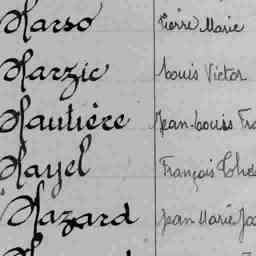 Harso Pierre Marie
Harzic Louis Victor
Hautière Jean-Louis Fra
Hayel François
Hazard Jean Marie